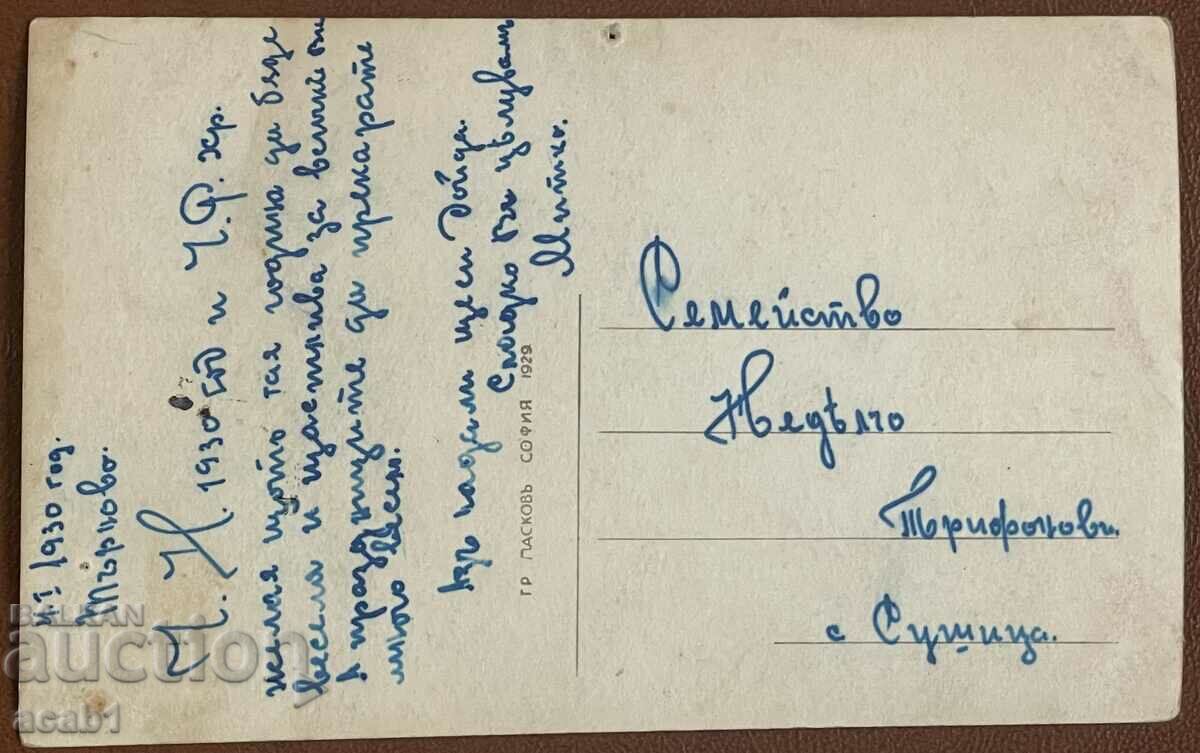 1930 год.
Търново.
Ч. Н. 1930 год и Ч. Р. Хр.
желая щото тая година да бѫде
весела и щастлива за всички ви
А празднците да прекарате
много весело.
Азъ надали щеси дойда.
Сладко ви цѣлувамъ
Митко.
ГР. ПАСКОВЪ СОФИЯ 1929
Семейство
Недѣлчо
Трифонови.
с Сушица.
BALKAN
auction
acab1